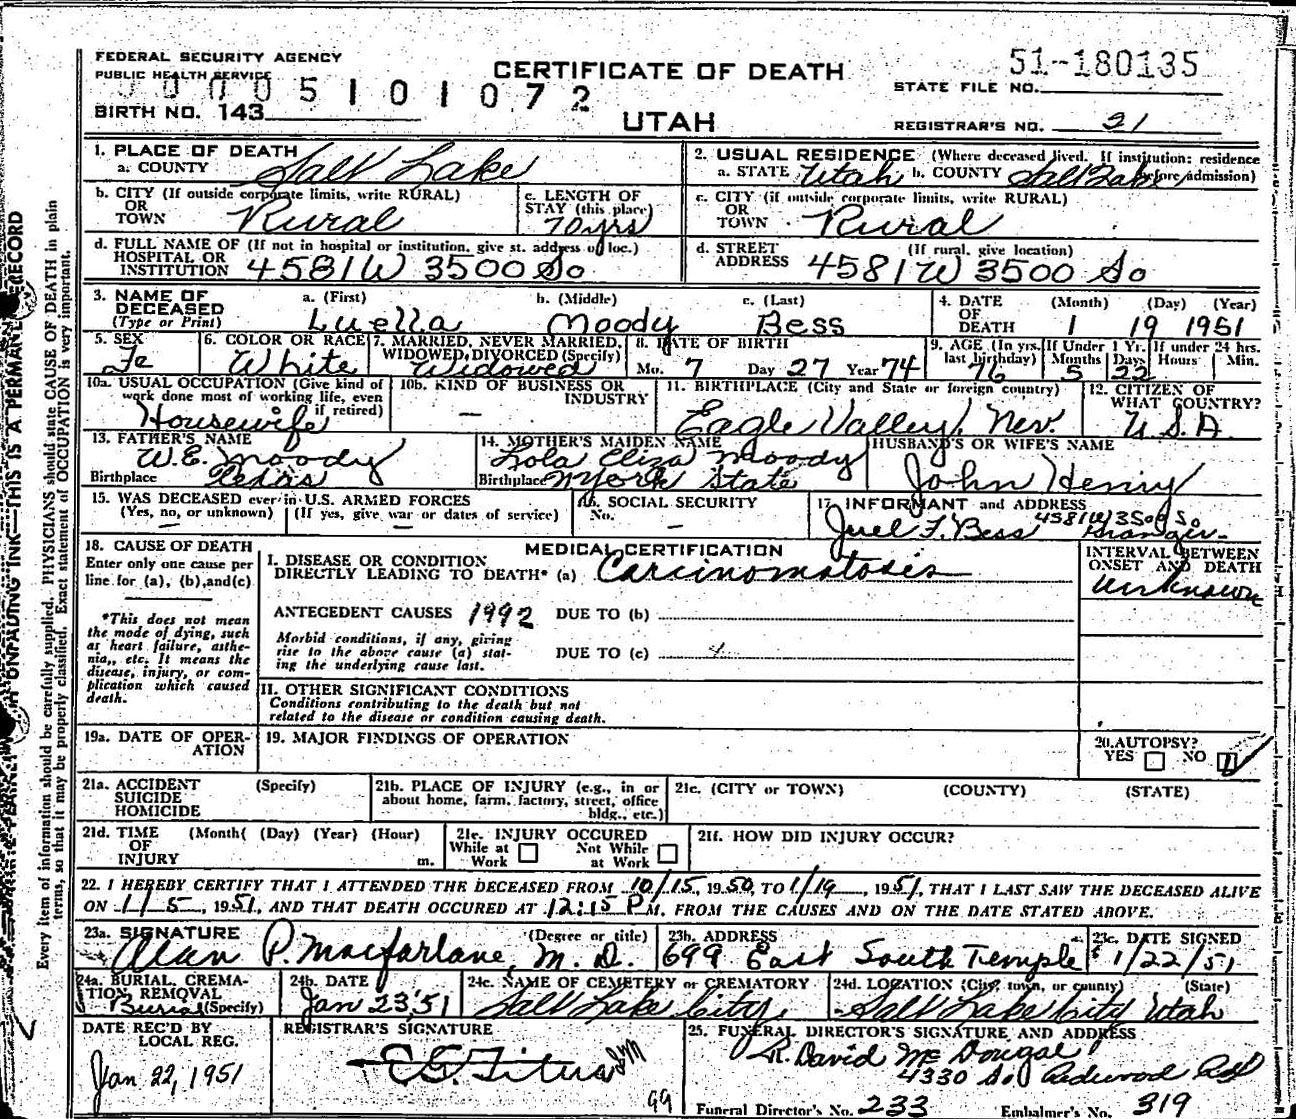 FEDERAL SECURITY AGENCY
PUBLIC HEALTH SERVICE
CERTIFICATE OF DEATH
51-180135
STATE FILE NO.
0005101072
BIRTH NO. 143
UTAH
REGISTRAR'S NO. 21
1. PLACE OF DEATH
a. COUNTY Salt Lake
2. USUAL RESIDENCE (Where deceased lived. If institution: residence
a. STATE Utah b. COUNTY Salt Lake before admission)
b. CITY (If outside corporate limits, write RURAL)
OR
TOWN Rural
c. LENGTH OF
STAY (this place)
70 yrs
c. CITY (if outside corporate limits, write RURAL)
OR
TOWN Rural
d. FULL NAME OF (If not in hospital or institution, give st. address or loc.)
HOSPITAL OR
INSTITUTION 4581 W 3500 So
d. STREET (If rural, give location)
ADDRESS 4581 W 3500 So
3. NAME OF
DECEASED
(Type or Print)
a. (First) b. (Middle) c. (Last)
Luella Moody Bess
4. DATE (Month) (Day) (Year)
OF
DEATH 1 19 1951
5. SEX
Fe
6. COLOR OR RACE
White
7. MARRIED, NEVER MARRIED,
WIDOWED, DIVORCED (Specify)
Widowed
8. DATE OF BIRTH
Mo. 7 Day 27 Year 74
9. AGE (In yrs. last birthday) 76
If Under 1 Yr. Months 5 Days 22
If under 24 hrs. Hours Min.
10a. USUAL OCCUPATION (Give kind of
work done most of working life, even
if retired)
Housewife
10b. KIND OF BUSINESS OR
INDUSTRY
—
11. BIRTHPLACE (City and State or foreign country)
Eagle Valley, Nev.
12. CITIZEN OF
WHAT COUNTRY?
U.S.A
13. FATHER'S NAME
W.E. Moody
Birthplace Texas
14. MOTHER'S MAIDEN NAME
Lola Eliza Moody
Birthplace N York State
HUSBAND'S OR WIFE'S NAME
John Henry
15. WAS DECEASED ever in U.S. ARMED FORCES
(Yes, no, or unknown) (If yes, give war or dates of service)
— —
16. SOCIAL SECURITY
No. —
17. INFORMANT and ADDRESS
4581 W 3500 So.
Juel F. Bess Granger
18. CAUSE OF DEATH
Enter only one cause per
line for (a), (b), and (c)
*This does not mean
the mode of dying, such
as heart failure, asthe-
nia,, etc. It means the
disease, injury, or com-
plication which caused
death.
MEDICAL CERTIFICATION
I. DISEASE OR CONDITION
DIRECTLY LEADING TO DEATH* (a) Carcinomatosis
INTERVAL BETWEEN
ONSET AND DEATH
unknown
ANTECEDENT CAUSES 1992 DUE TO (b)
Morbid conditions, if any, giving
rise to the above cause (a) stat-
ing the underlying cause last.
DUE TO (c)
II. OTHER SIGNIFICANT CONDITIONS
Conditions contributing to the death but not
related to the disease or condition causing death.
19a. DATE OF OPER-
ATION
19. MAJOR FINDINGS OF OPERATION
20. AUTOPSY?
YES NO
21a. ACCIDENT (Specify)
SUICIDE
HOMICIDE
21b. PLACE OF INJURY (e.g., in or
about home, farm, factory, street, office
bldg., etc.)
21c. (CITY or TOWN) (COUNTY) (STATE)
21d. TIME (Month( (Day) (Year) (Hour)
OF
INJURY m.
21e. INJURY OCCURED
While at Not While
Work at Work
21f. HOW DID INJURY OCCUR?
22. I HEREBY CERTIFY THAT I ATTENDED THE DECEASED FROM 10/15, 1950, TO 1/19, 1951, THAT I LAST SAW THE DECEASED ALIVE
ON 1/5, 1951, AND THAT DEATH OCCURED AT 12:15 P M. FROM THE CAUSES AND ON THE DATE STATED ABOVE.
23a. SIGNATURE (Degree or title)
Alan P. Macfarlane, M.D.
23b. ADDRESS
699 East South Temple
23c. DATE SIGNED
1/22/51
24a. BURIAL, CREMA-
TION, REMOVAL
Burial (Specify)
24b. DATE
Jan 23, 51
24c. NAME OF CEMETERY or CREMATORY
Salt Lake City,
24d. LOCATION (City, town, or county) (State)
Salt Lake City Utah
DATE REC'D BY
LOCAL REG.
Jan 22, 1951
REGISTRAR'S SIGNATURE
99
25. FUNERAL DIRECTOR'S SIGNATURE AND ADDRESS
R. David McDougal
4330 So Redwood Rd
Funeral Director's No. 233 Embalmer's No. 319
UNFADING INK—THIS IS A PERMANENT RECORD
Every item of information should be carefully supplied. PHYSICIANS should state CAUSE OF DEATH in plain
terms, so that it may be properly classified. Exact statement of OCCUPATION is very important.